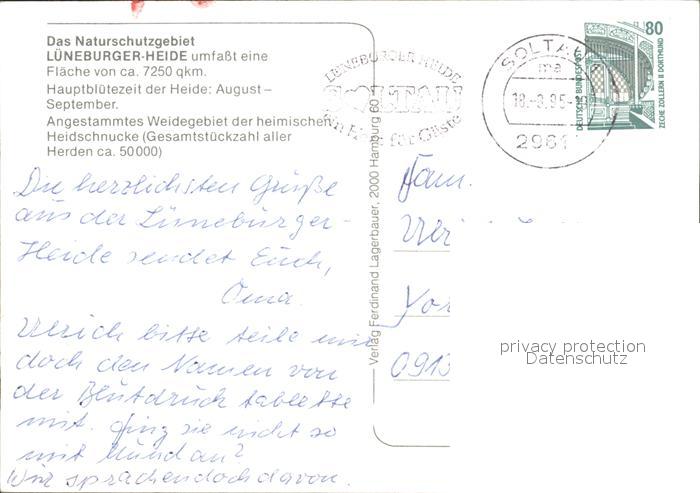 Das Naturschutzgebiet
LÜNEBURGER-HEIDE umfaßt eine
Fläche von ca. 7250 qkm.
Hauptblütezeit der Heide: August –
September.
Angestammtes Weidegebiet der heimischen
Heidschnucke (Gesamtstückzahl aller
Herden ca. 50000)
Die herzlichsten Grüße
aus der Lüneburger-
Heide sendet Euch,
Oma.
Ulrich bitte teile mir
doch den Namen von
der Blutdruck tablette
mit. fing sie nicht so
mit Mund an?
Wir sprachen doch davon.
Verlag Ferdinand Lagerbauer, 2000 Hamburg 60
LÜNEBURGER HEIDE
SOLTAU
ein Herz für Gäste
SOLTAU
ma
18.-8.95-
2961
80
DEUTSCHE BUNDESPOST
ZECHE ZOLLERN II DORTMUND
Fam.
0913
privacy protection
Datenschutz